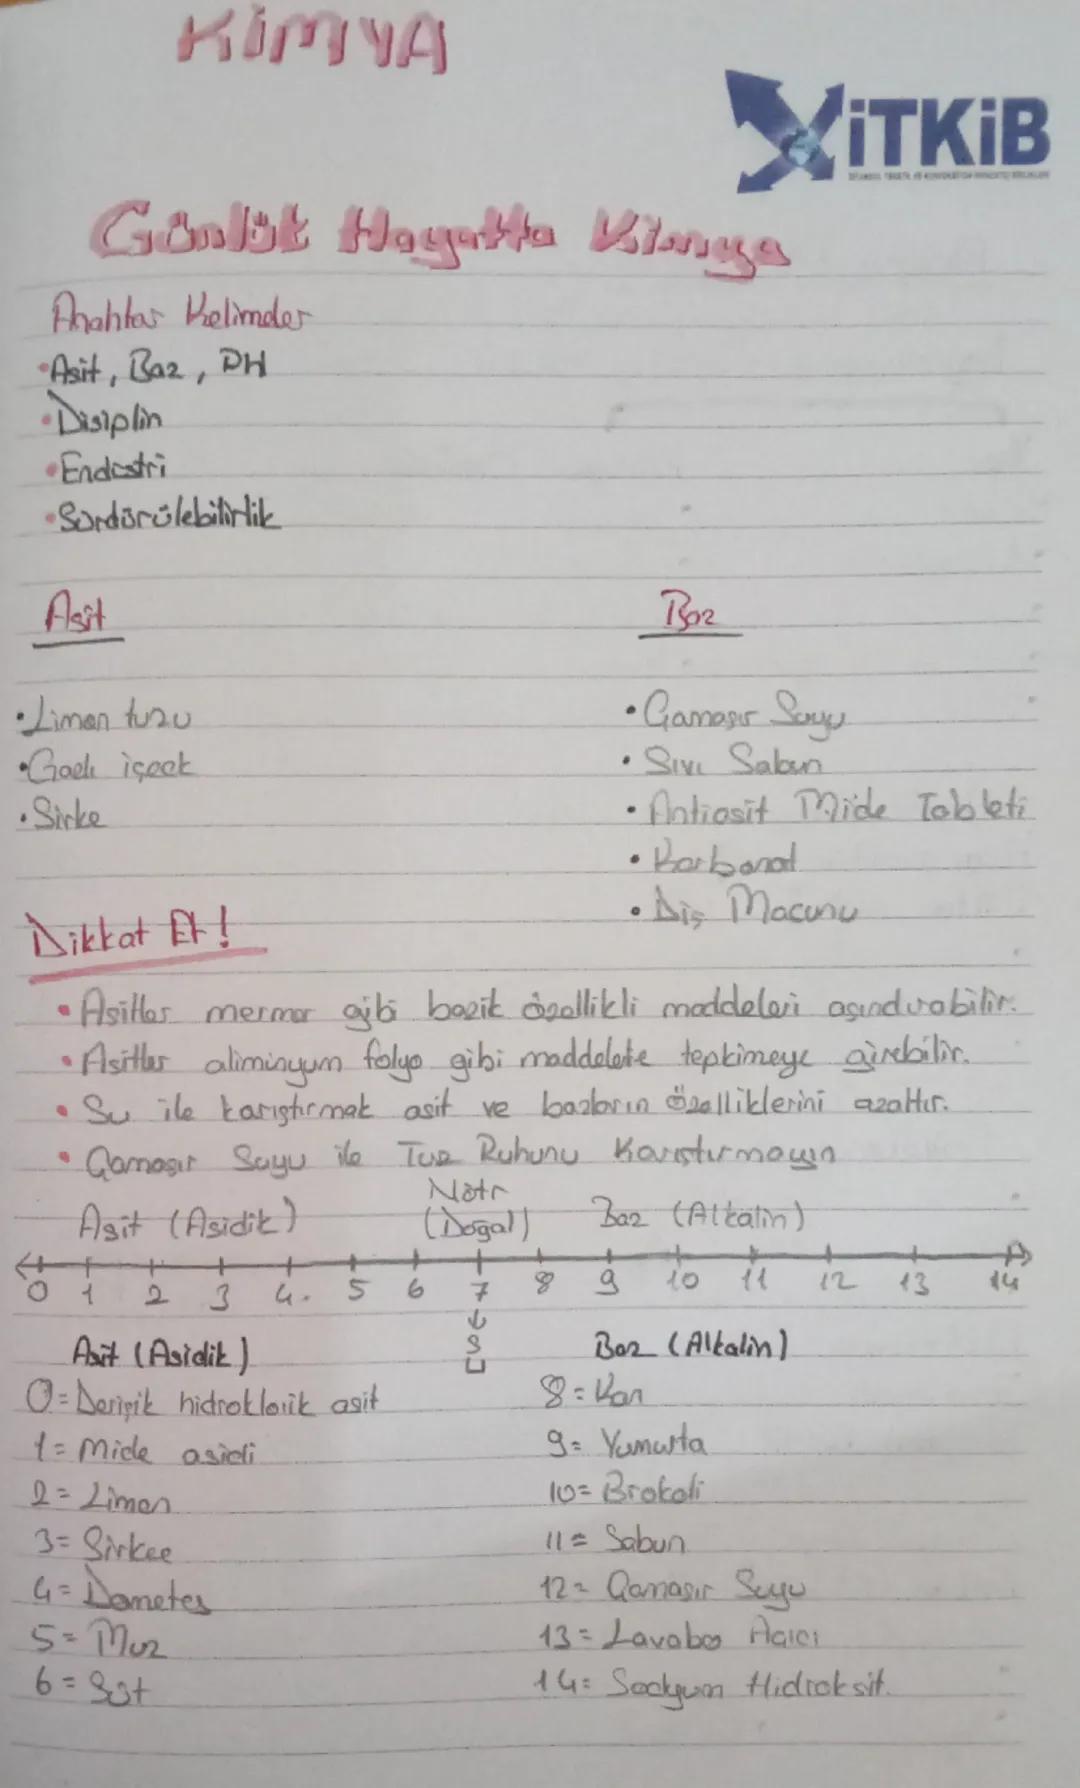 KİMYA
İTKİB
Günlük Hayatta Kimya
Anahtar Kelimeler
•Asit, Baz, PH
•Disiplin
•Endüstri
•Sürdürülebilirlik
Asit
Baz
•Limon tuzu
•Gazlı içecek
•Sirke
•Çamaşır Suyu
•Sıvı Sabun
•Antiasit Mide Tableti
•Karbonat
•Diş Macunu
Dikkat Et!
•Asitler mermer gibi bazik özellikli maddeleri aşındırabilir.
•Asitler aliminyum folyo gibi maddelerle tepkimeye girebilir.
•Su ile karıştırmak asit ve bazların özelliklerini azaltır.
•Çamaşır Suyu ile Tuz Ruhunu Karıştırmayın
Asit (Asidik) Nötr (Doğal) Baz (Alkalin)
0 1 2 3 4. 5 6 7 8 9 10 11 12 13 14
Su
Asit (Asidik)
0=Derişik hidroklorik asit
1= Mide asidi
2= Limon
3= Sirkee
4= Dometes
5= Muz
6= Süt
Baz (Alkalin)
8= Kan
9= Yumurta
10= Brokoli
11= Sabun
12= Çamaşır Suyu
13= Lavabo Açıcı
14= Sodyum Hidroksit.